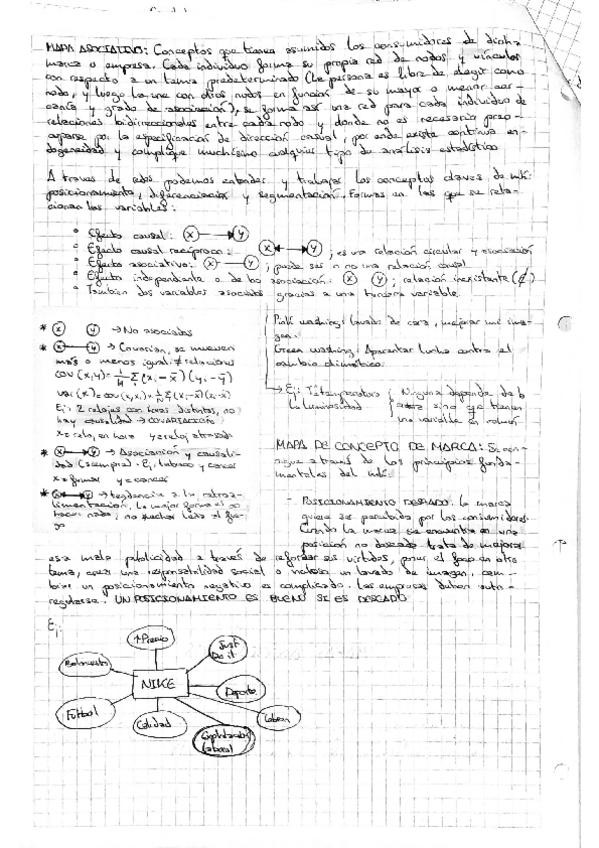 MAPA ASOCIATIVO: Conceptos que tienen asumidos los consumidores de dicha
marca o empresa. Cada individuo forma su propia red de nodos y vínculos
con respecto a un tema predeterminado (la persona es libre de elegir como
nodo, y luego la une con otros nodos en función de su mayor o menor cer-
canía y grado de asociación), se forma así una red para cada individuo de
relaciones bidireccionales entre cada nodo y donde no es necesario preo-
cuparse por la especificación de dirección causal y por ende existe continua en-
dogeneidad y complique muchísimo cualquier tipo de análisis estadístico
A traves de redes podemos entender y trabajar los conceptos claves de mk:
posicionamiento, diferenciación y segmentación. Formas en las que se rela-
cionan las variables:
• Efecto causal: X → Y
• Efecto causal recíproco: X ↔ Y ; es una relación circular y
• Efecto asociativo: X — Y ; puede ser o no una relación causal
• Efecto independiente o de no asociación: X Y ; relación inexistente
• También dos variables asociadas gracias a una tercera variable.
* X Y → No asociadas
* X — Y → Covarían, se mueven
más o menos igual ≠ relaciones
cov (x,y) = 1/N Σ (xi - x̄) (yi - ȳ)
var (x) = cov (x,x) = 1/N Σ (xi - x̄) (xi - x̄)
Ej: 2 relojes con horas distintas, no
hay causalidad → COVARIACIÓN
x = reloj en hora y = reloj atrasado
* X → Y → Asociación y causali-
dad (siempre). Ej: tabaco y cancer
x = fumar y = cancer
* X ↔ Y → tendencia a la retroa-
limentación. La mejor forma es no
hacer nada, no echar leña al fue-
go
Pink washing: lavado de cara, mejorar mi ima-
gen.
Green washing: Aparentar lucha contra el
cambio climático.
→ Ej: Interruptores Ninguna depende de
la luminosidad sino que tienen
una variable en común
MAPA DE CONCEPTO DE MARCA: Se con-
sigue a través de los principios funda-
mentales del mk:
- POSICIONAMIENTO DESEADO: la marca
quiere ser percibida por los consumidores.
Cuando la marca se encuentra en una
posición no deseada trata de mejorar
esa mala publicidad a través de reforzar sus virtudes, poner el foco en otro
tema, crear una responsabilidad social o incluso un lavado de imagen, cam-
biar un posicionamiento negativo es complicado. Las empresas deben auto-
regularse. UN POSICIONAMIENTO ES BUENO SI ES DESEADO
Ej:
↑Precio
Just
Do it
NIKE
Deporte
Futbol
Calidad
Explotación
laboral